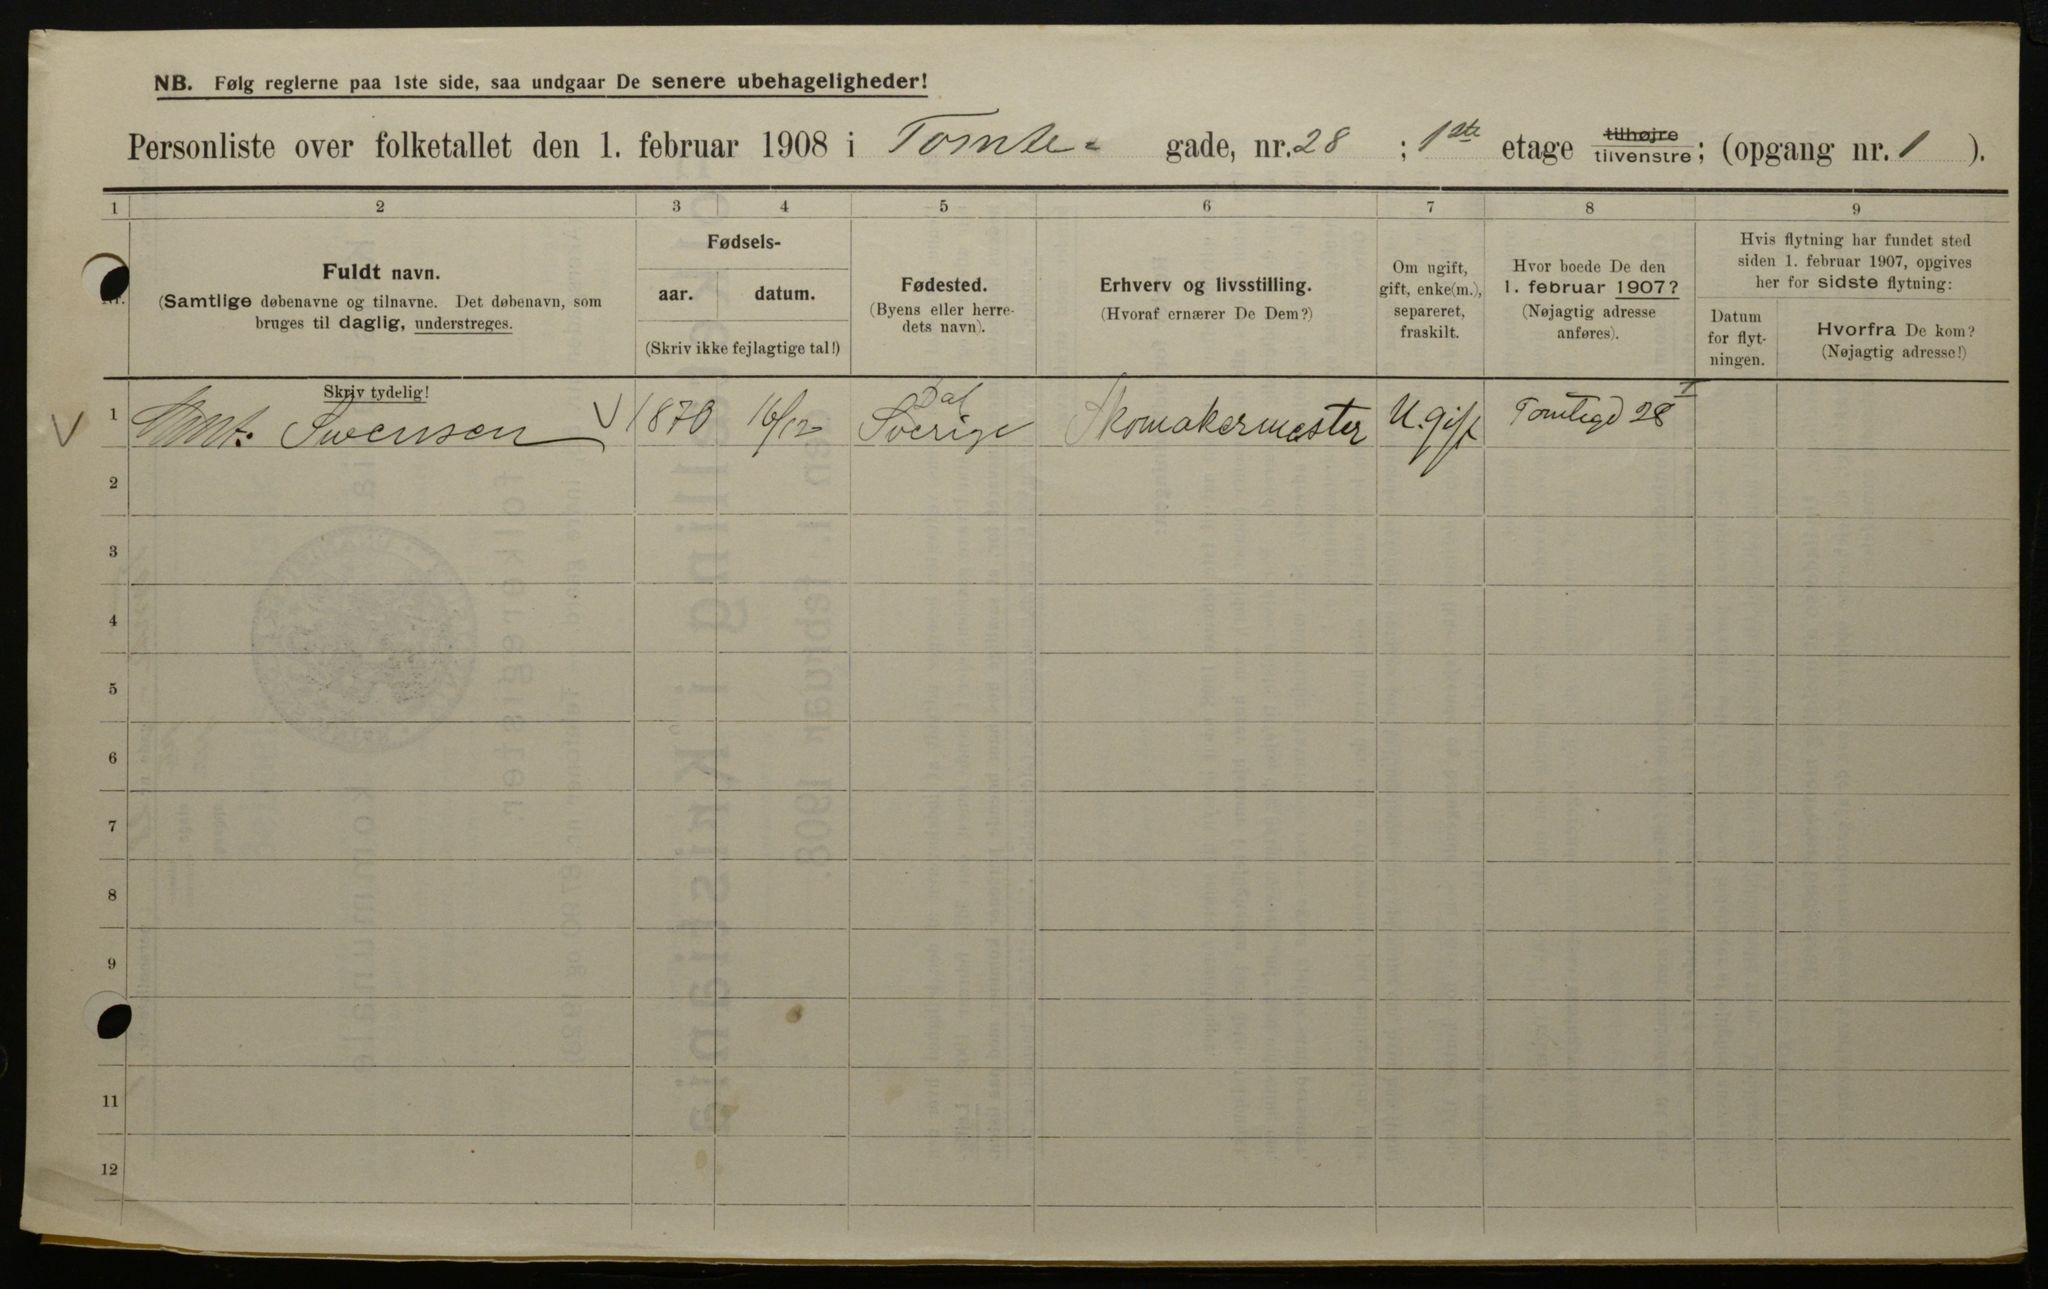 NB. Følg reglerne paa 1ste side, saa undgaar De senere ubehageligheder!
Personliste over folketallet den 1. februar 1908 i Tomte- gade, nr. 28 ; 1ste etage tilhøjre tilvenstre; (opgang nr. 1 ).
1 2 3 4 5 6 7 8 9
Nr.
Fuldt navn.
(Samtlige døbenavne og tilnavne. Det døbenavn, som
bruges til daglig, understreges.
Fødsels-
aar. datum.
(Skriv ikke fejlagtige tal!)
Fødested.
(Byens eller herre-
dets navn).
Erhverv og livsstilling.
(Hvoraf ernærer De Dem?)
Om ugift,
gift, enke(m.),
separeret,
fraskilt.
Hvor boede De den
1. februar 1907?
(Nøjagtig adresse
anføres).
Hvis flytning har fundet sted
siden 1. februar 1907, opgives
her for sidste flytning:
Datum
for flyt-
ningen.
Hvorfra De kom?
(Nøjagtig adresse!)
Skriv tydelig!
V 1 Swensen V 1870 16/12 Dal Sverige Skomakermester U.gift Tomtegd 28 I
2
3
4
5
6
7
8
9
11
12